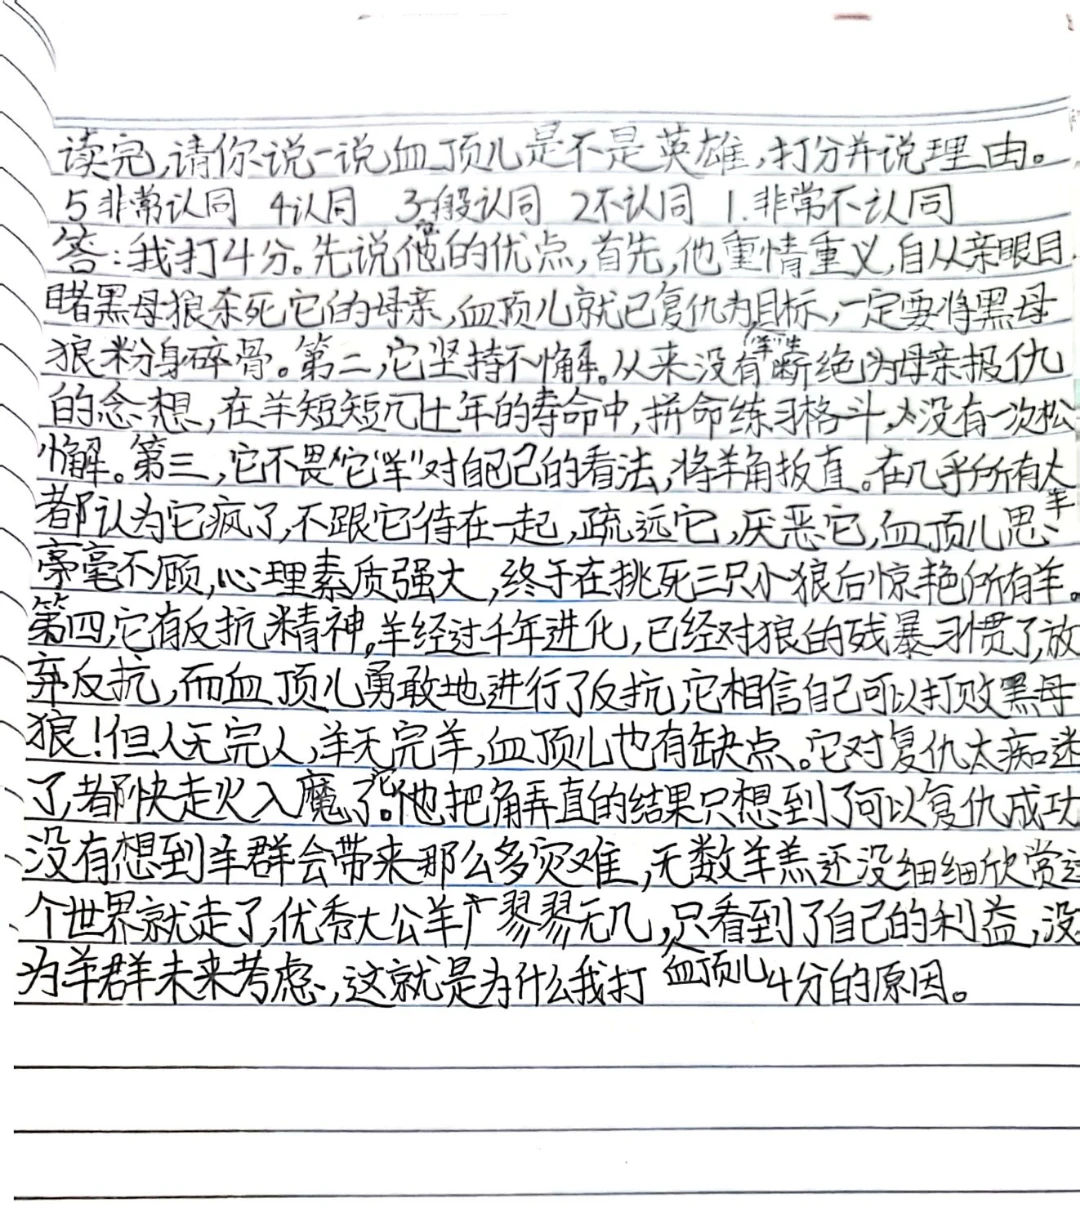 读完,请你说一说血顶儿是不是英雄,打分并说理由。
5非常认同 4认同 3一般认同 2不认同 1.非常不认同
答:我打4分。先说他的优点,首先,他重情重义,自从亲眼目
睹黑母狼杀死它的母亲,血顶儿就已复仇为目标,一定要将黑母
狼粉身碎骨。第二,它坚持不懈。从来没有断绝为母亲报仇
的念想,在羊短短几十年的寿命中,拼命练习格斗,没有一次松
懈。第三,它不畏"它羊"对自己的看法,将羊角扳直。在几乎所有大羊
都认为它疯了,不跟它待在一起,疏远它,厌恶它,血顶儿思
毫不顾,心理素质强大,终于在挑死三只小狼后惊艳所有羊。
第四,它有反抗精神。羊经过千年进化,已经对狼的残暴习惯了,放
弃反抗,而血顶儿勇敢地进行了反抗,它相信自己可以打败黑母
狼!但人无完人,羊无完羊,血顶儿也有缺点。它对复仇太痴迷
了,都快走火入魔了。他把角弄直的结果只想到了可以复仇成功
没有想到羊群会带来那么多灾难,无数羊羔还没细细欣赏这
个世界就走了,优秀大公羊寥寥无几,只看到了自己的利益,没
为羊群未来考虑,这就是为什么我打血顶儿4分的原因。